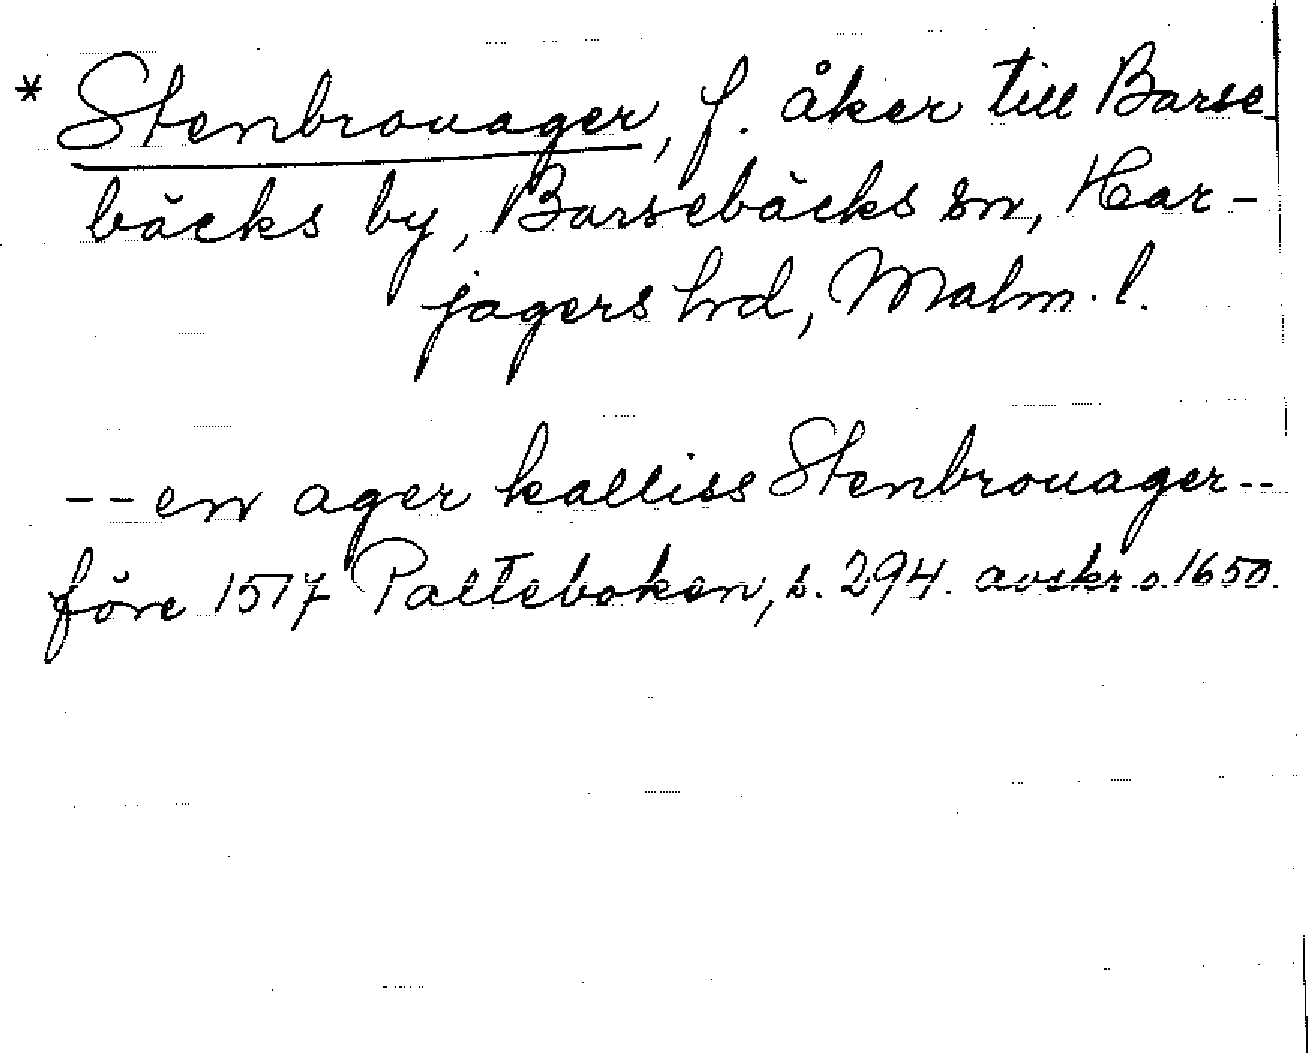 * Stenbrouager, f. åker till Barse-
bäcks by, Barsebäcks sn, Har-
jagers hd, Malm. l.
-- en ager kalliss Stenbrouager --
före 1517 Palteboken, s. 294. avskr. o. 1650.